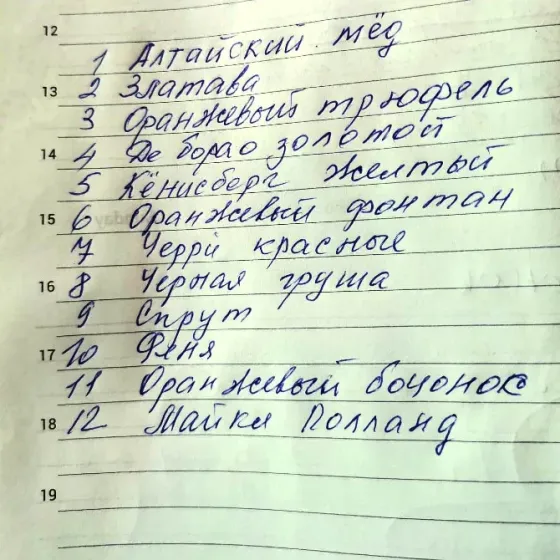 12
1 Алтайский мёд
13 2 Златава
3 Оранжевый трюфель
14 4 Де борао золотой
5 Кёнисберг желтый
15 6 Оранжевый фонтан
7 Черри красные
16 8 Черная груша
9 Спрут
17 10 Феня
11 Оранжевый бочонок
18 12 Майкл Полланд
19